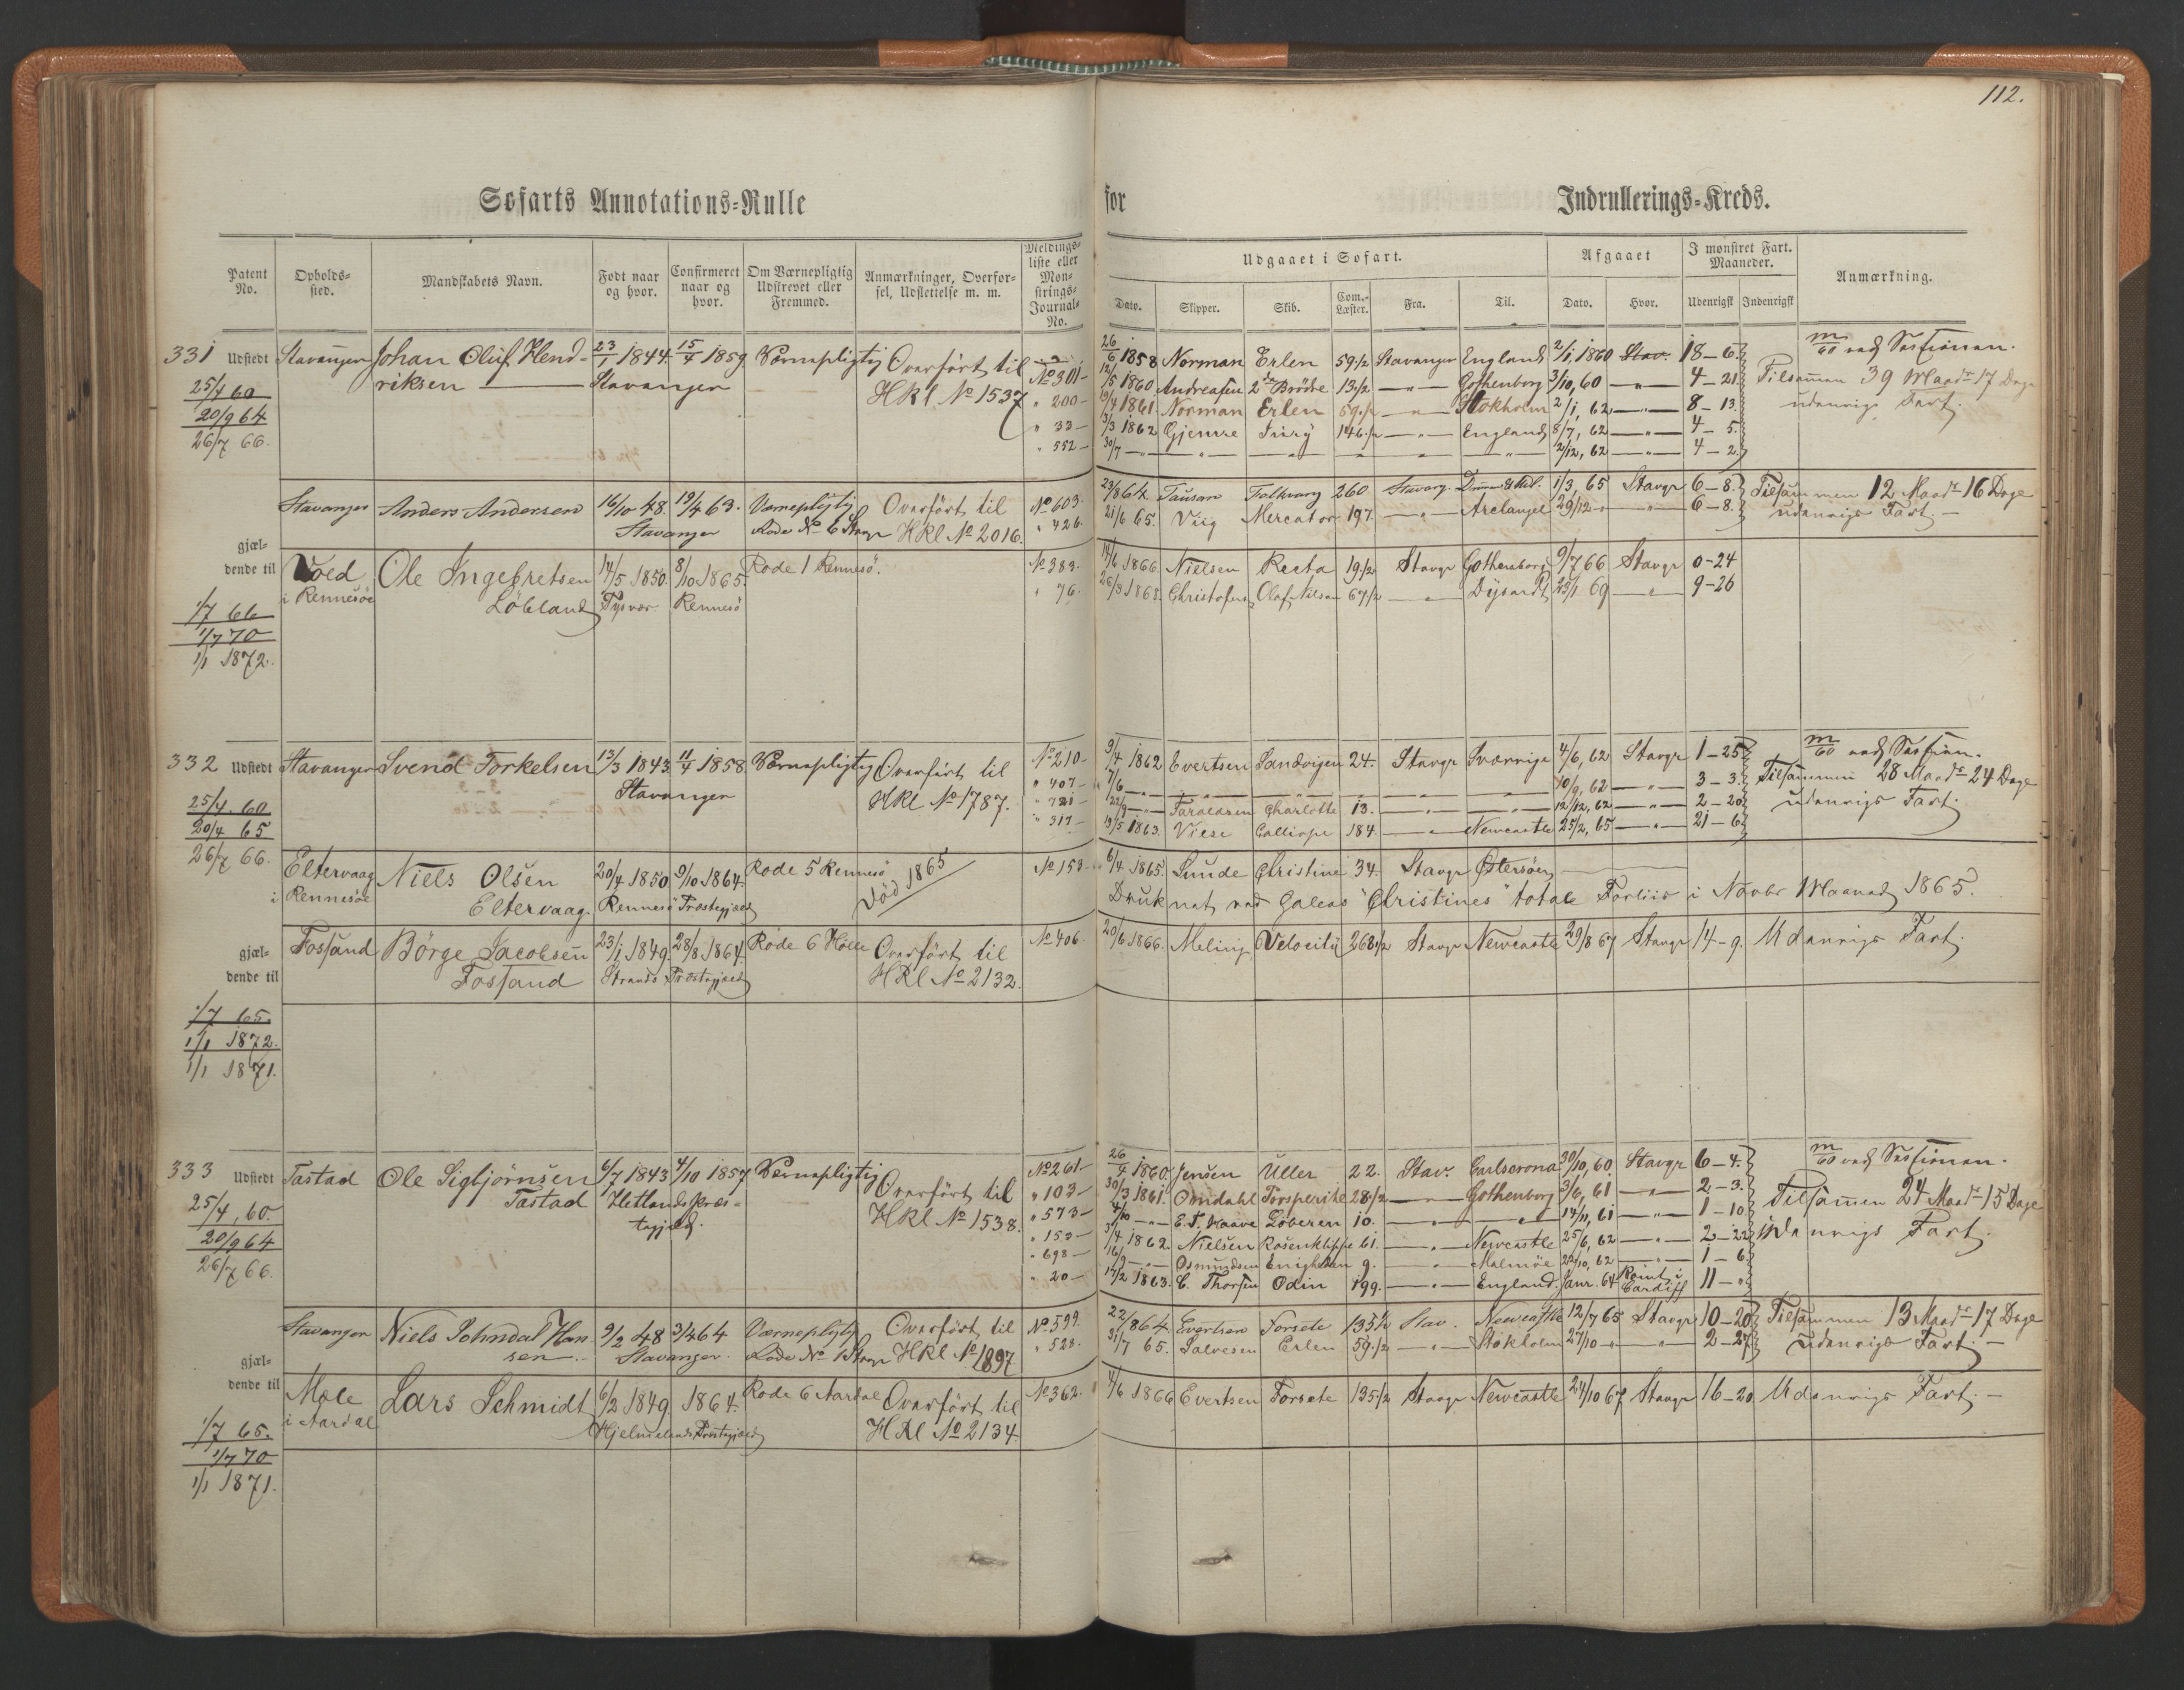 112.
Søfarts Annotations-Rulle for Indrullerings-Kreds.
Patent No.
Opholds-sted.
Mandskabets Navn.
Født naar og hvor.
Confirmeret naar og hvor.
Om Værnepligtig Udskrevet eller Fremmed.
Anmærkninger, Overførsel, Udslettelse m. m.
Meldings-liste eller Mønstrings-Journal-No.
Udgaaet i Søfart.
Dato. Skipper. Skib. Com.-Læster. Fra. Til.
Afgaaet
Dato. Hvor.
I mønstret Fart. Maaneder.
Udenrigsk Indenrigsk
Anmærkning.
331 Udstedt Stavanger Johan Oluf Hend- 23/1 1844. 15/4 1859. Værnepligtig Overført til No 301 26/6 1858 Norman Erlen 59 1/2 Stavanger England 2/1, 1860 Stav. 18-6. m/60 ved Sessionen.
25/4 60 riksen Stavanger HKl No 1537 " 200 12/5 1860 Andreasen 2de Brødre 13 1/2 " Gothenborg 3/10, 60 " 4-21. Tilsammen 39 Maadr 17 Dage
20/9 64 19/4 1861. Norman Erlen 59 1/2 " Stokholm 2/1, 62 " 8-13. udenrigs Fart.
26/7 66. " 33 3/3 1862 Gjemre Juny 146 1/2 " England 8/7, 62 " 4-5.
" 552 30/7 " " " " " 2/12, 62 " 4-2.
Stavanger Anders Andersen 16/10 48. 19/4 63. Værnepligtig Overført til No 603. 23/8 64. Tausan Folkvang 260 Stavang. 1/3, 65 Stavgr 6-8. Tilsammen 12 Maadr 16 Dage
Stavanger Rode No 6 Stavgr HKl No 2016. " 426. 21/6 65. Viig Mercator 197. " Archangel 29/12 " " 6-8. udenrigs Fart.
gjæl-
dende til
Voed Ole Ingebretsen 14/5 1850. 8/10 1865. Rode 1 Rennesø. No 383. 14/6 1866. Nielsen Recta 19 1/2 Stavgr Gothenborg 9/7 66 Stavgr 0-24
i Rennesøe Løbland Tysvær Rennesø " 76. 26/3 1868. Christofers. Olaf Nilsen 67 1/2 " Dysardt 29/1 69 " 9-26
1/7 66
1/7 70
1/1 1872.
332 Udstedt Stavanger Svend Torkelsen 13/3 1843. 11/4 1858. Værnepligtig Overført til No 210 3/4 1862 Evertsen Sandvigen 24. Stavgr Sverrige 4/6, 62 Stavgr 1-25 m/60 ved Session.
25/4. 60 Stavanger HKl No 1787. " 407 7/6 " " " " " 10/9, 62 " 3-3. Tilsammen 28 Maadr 24 Dage
20/4 65 22/9 Faraldsen Charlotte 13. " " 12/12, 62 " 2-20 udenrigs Fart.
26/7 66. " 317 19/5 1863. Viese Calliope 184. " Newcastle 25/2, 65 " 21-6
Eltervaag Niels Olsen 20/4 1850 9/10 1864. Rode 5 Rennesø No 153 6/4 1865. Lunde Christine 34. Stavgr Østersøen
i Rennesøe Eltervaag. Rennesø Præstegjæld Død 1865 Druknet ved Galeas "Christines" totale Forliis i Novbr Maaned 1865.
Fossand Børge Jacobsen 23/1 1849. 28/8 1864. Rode 6 Holle Overført til No 406. 20/6 1866. Meling Velocity 268 1/2 Stavgr Newcastle 29/8 67 Stavgr 14-9. Udenrigs Fart.
Fossand Strands Præstegjæld HKl No 2132.
gjæl-
dende til
1/7 65.
1/1 1872.
1/1 1871.
333 Udstedt Tastad Ole Sigbjørnsen 6/7 1843 4/10 1857 Værnepligtig Overført til No 261 26/4 1860. Jensen Uller 22. Stav. Carlscrona 30/10, 60 Stavgr 6-4. m/60 ved Sessionen.
25/4, 60. Tastad Hetlands Præs- HKl No 1538. " 103 30/3 1861. Omdahl Torsperike 28 1/2 " Gothenborg 3/6, 61 " 2-3. Tilsammen 24 Maadr 15 Dage
20/9 64 tegjæld. " 573 4/10 E. T. Haave Løberen 10. " " 14/11, 61 " 1-10 udenrigs Fart.
26/7 66. " 152 3/4 1862. Nielsen Rosenklippe 61. " Newcastle 25/6, 62 " 2-22
" 698 16/9 Osmundsen Enigheden 9. " Malmöe 22/10, 62 " 1-6
" 20 14/2 1863. C. Thorsen Odin 199. " England. Janr. 64 Rømt i Cardiff 11-"
Stavanger Niels Johndal Han 9/2 48 3/4 64 Værnepligtig Overført til No 599. 22/8 64. Evertsen Forsete 135 1/2 Stav. Newcastle 12/7 65 Stavgr 10-20 Tilsammen 13 Maadr 17 Dage
sen. Stavanger. Rode No 1 Stavgr HKl No 1897 " 528. 31/7 65. Salvesen Erlen 59 1/2 " Stokholm 27/10 " " 2-27 udenrigs Fart
gjæl-
dende til
Mæle Lars Schmidt 6/2 1849 1864. Rode 6 Aardal Overført til No 362. 4/6 1866 Evertsen Forsete 135 1/2 Stavgr Newcastle 24/10 67 Stavgr 16-20. Udenrigs Fart.
i Aardal Hjelmelands Præstegjæld HKl No 2134.
1/7 65.
1/7 70
1/1 1871.